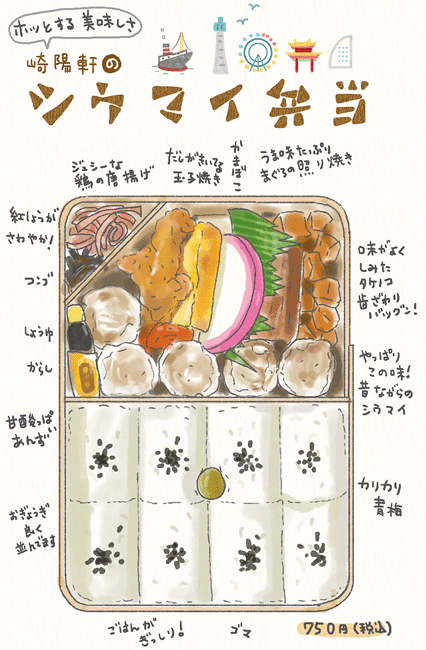 ホッとする美味しさ
崎陽軒の
シウマイ弁当
ジューシーな
鶏の唐揚げ
だしがきいてる
玉子焼き
かまぼこ
うま味たっぷり
まぐろの照り焼き
紅しょうが
さわやか!
コンブ
しょうゆ
からし
甘酸っぱ
あんず
おぎょうぎ
良く
並んでます
味がよく
しみた
タケノコ
歯ざわり
バツグン!
やっぱり
この味!
昔ながらの
シウマイ
カリカリ
青梅
ごはんが
ぎっしり!
ゴマ
750円(税込)